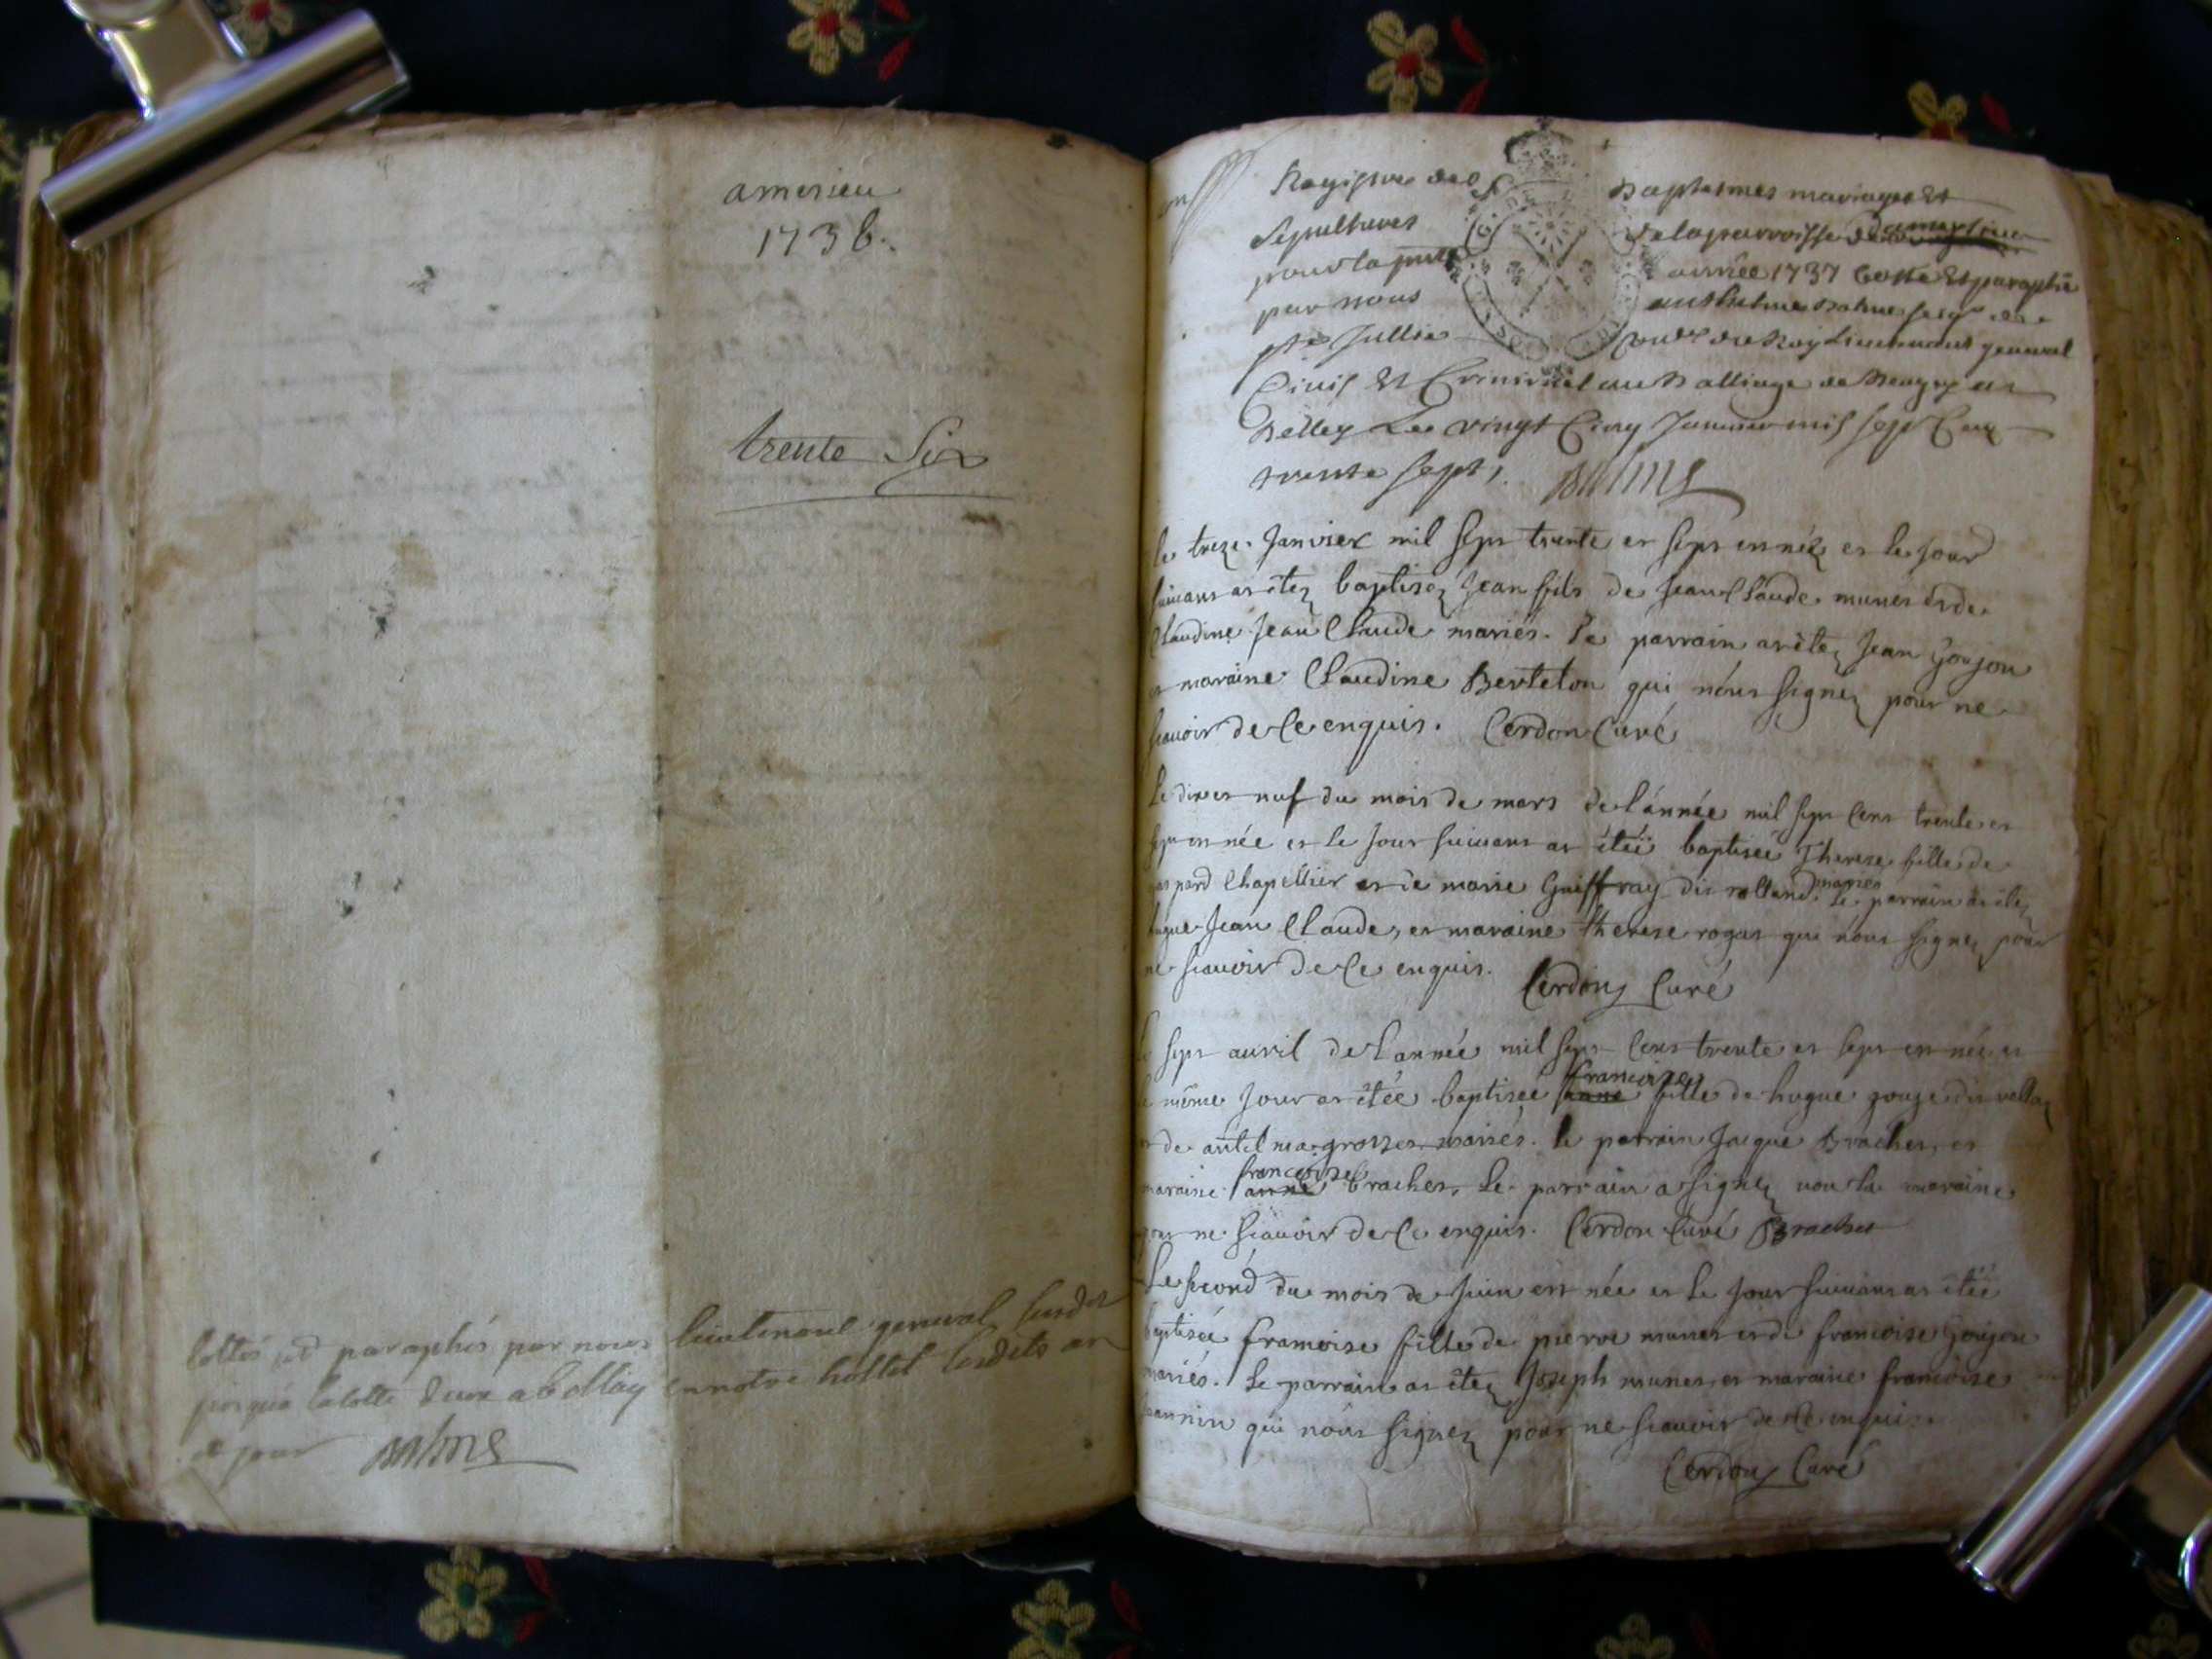 amerieu
1736.
trente Six
Cottés et paraphés par nous lieutenant general susdit
jusqua la cotte deux a belley en notre hostel lesdits an
et jour Balme
Registre des Baptesmes mariages Et
Sepultures de la parroisse
pour la pnte année 1737 Cotté Et paraphé
par nous anthelme Balme seigr de
ste Jullie Conser du Roy Lieutenant general
Civil Et Criminel au Balliage de Beugey et
Belley Le vingt Cinq Janvier mil sept Cent
trente sept. Balme
le treze Janvier mil sept trente et sept est néz et le jour
suivant at étez baptisez Jean fils de Jean Claude munet et de
Claudine Jean Claude mariés. Le parrain at étez Jean Goujon
et maraine Claudine Berteton qui nónt signez pour ne
scavoir de Ce enquis. Cerdon Curé
Le dix et nuf du mois de mars de l'année mil sept Cent trente et
sept est née et le jour suivant at étéé baptiseé Therese fille de
gaspard Chapellier et de marie Guiffray dit rolland mariés. Le parrain at étez
hugue Jean Claude, et maraine therese rogat qui nónt signez pour
ne scavoir de Ce enquis.
Cerdon Curé
Le sept auvril de Lannée mil sept Cent trente et sept est née et
le même jour at étée baptiseé francoise fille de hugue gouge dit
et de antelmea grosset mariés. le parrain Jacque Brachet, et
maraine francoise brachet, Le parrain a signez non la maraine
pour ne scavoir de Ce enquis. Cerdon Curé Brachet
Le second du mois de Juin est née et le jour suivant at étéé
baptiseé francoise fille de pierre munet et de francoise Goujon
mariés. Le parrain at étez Joseph munet, et maraine francoise
Jeannin qui nónt signez pour ne scavoir de Ce enquis.
Cerdon Curé